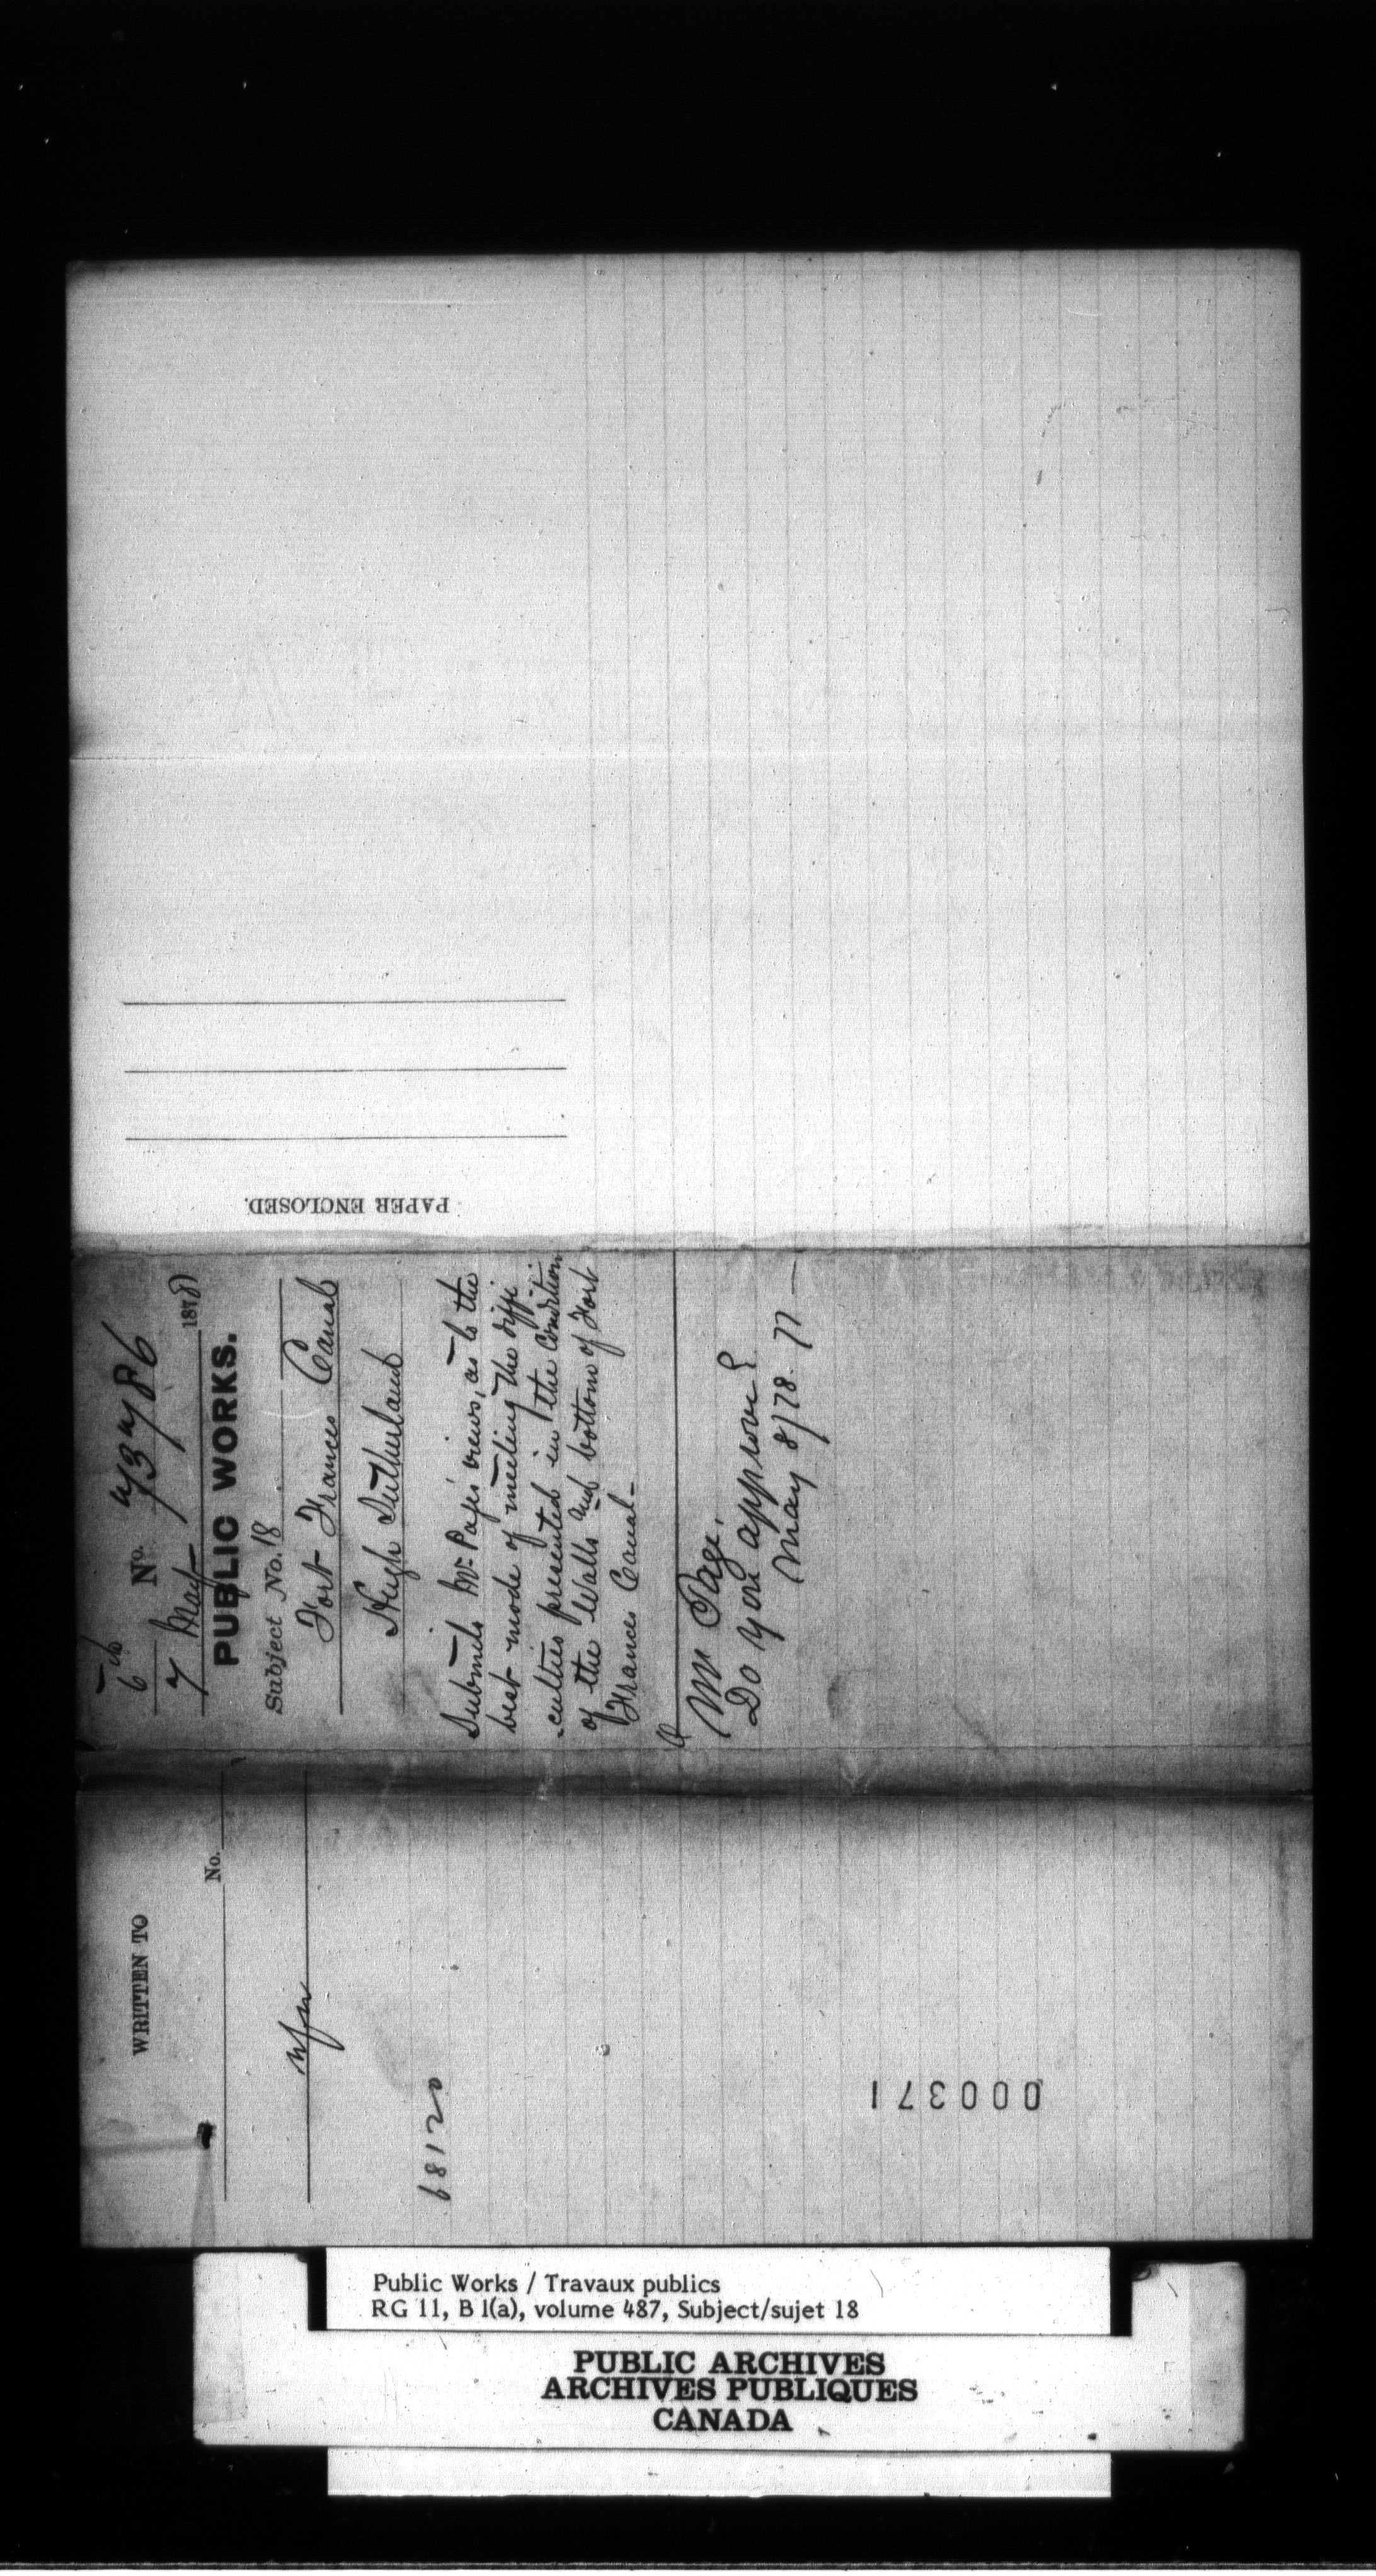 PAPER ENCLOSED.
6th
No. 73786
7 May 1878
PUBLIC WORKS.
Subject No. 18
Fort Frances Canal
Hugh Sutherland
Submits Mr Page's views, as to the
best mode of meeting the diffi-
-culties presented in the condition
of the Walls and bottom of Fort
Frances Canal-
Mr Page.
Do you approve?
May 8/78.
WRITTEN TO
No.
68120
000371
Public Works / Travaux publics
RG 11, B 1(a), volume 487, Subject/sujet 18
PUBLIC ARCHIVES
ARCHIVES PUBLIQUES
CANADA